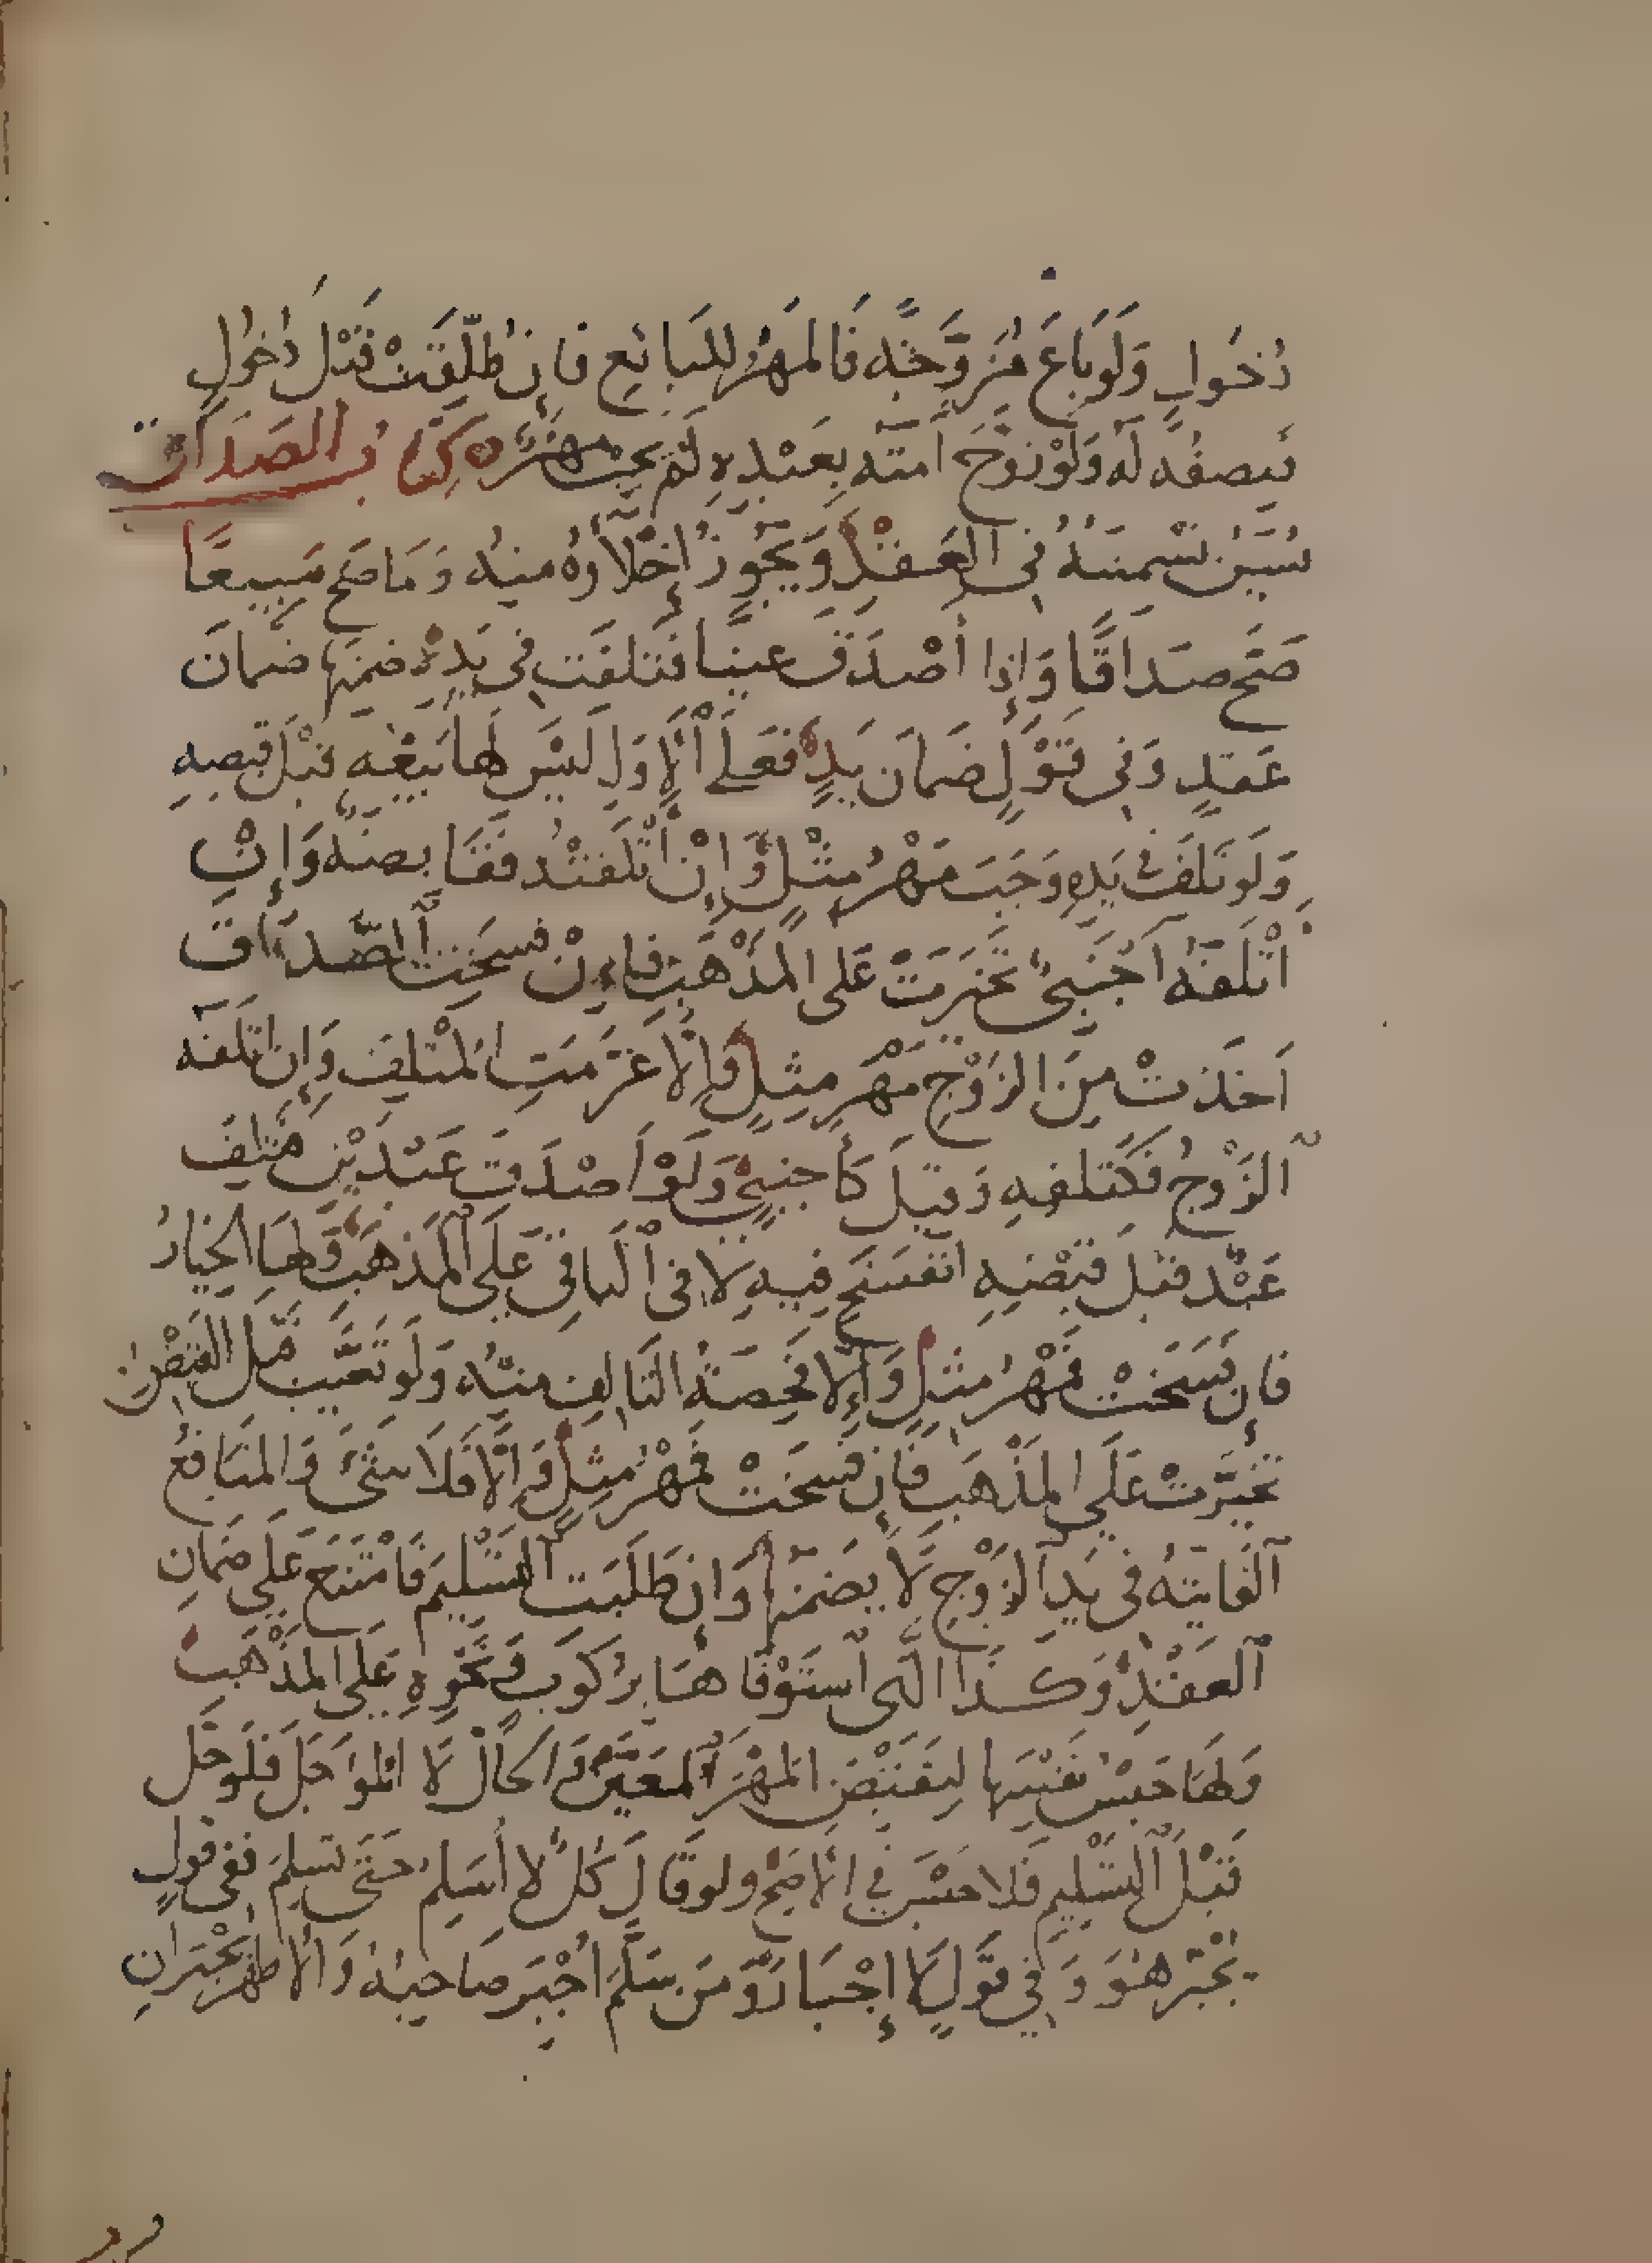 دُخُولٍ وَلَوبَاعَ مُزَوَّجَةً فَالمَهْرُ لِلبَائِعِ فَإِن طُلِّقَتْ قَبْلَ دُخُولٍ
فَنِصْفُهُ لَهُ وَلَوْ زَوَّجَ أَمَتَهُ بِعَبْدِهِ لَمْ يَجِبْ مَهْرٌ ه كِتَابُ الصَدَاق
تُسَنُّ تَسْمِيَتُهُ فِي العَقْدِ وَيَجُوزُ إِخْلَاؤُهُ مِنْهُ وَمَا صَحَّ مَبِيعًا
صَحَّ صَدَاقًا وَإِذا أَصْدَقَ عَينًا فَتَلِفَت فِي يَدِهِ ضَمِنَهَا ضَمانَ
عَقدٍ وَفِي قَوْلٍ ضَمَانَ يَدٍ فَعَلَى الأَوَلِ لَيْسَ لَهَا بَيْعُهُ قَبْلَ قَبضِهِ
وَلَو تَلِفَ فِي يَدِهِ وَجَبَ مَهْرُ مِثْلٍ وَإِنْ أَتْلَفَتْهُ فَقَابِضَةٌ وَإِنْ
أَتْلَفَهُ أَجْنَبِيٌّ تَخَيَّرَتْ عَلَى المَذْهَبِ فَإِنْ فَسَخَتِ الصَّدَاقَ
أَخَذَتْ مِنَ الزَوْجِ مَهْرَ مِثلٍ وَإِلَّا غَرَّمَتِ المُتْلِفَ وَإِن أَتْلَفَهُ
الزَوْجُ فَكَتَلَفِهِ وَقِيلَ كَأَجنبِيٍّ وَلَوْ أَصْدَقَ عَبْدَيْنِ فَتَلِفَ
عَبْدٌ قَبْلَ قَبْضِهِ انْفَسَخَ فِيهِ لَا فِي الْبَاقِي عَلَى المَذهَبِ وَلَهَا الخِيَارُ
فَإِن فَسَخَتْ فَمَهْرُ مِثْلٍ وَإِلَّا فَحِصَةُ التَالِفِ مِنْهُ وَلَو تَعَيَّبَ قَبْلَ القَبْضِ
تَخَيَّرَتْ عَلَى المَذْهَبِ فَإِن فَسَخَتْ فَمَهْرُ مِثْلٍ وَإِلَّا فَلَا شَىْءَ وَالمَنَافِعُ
الْفَائِتَةُ فِي يَدِ الزَوْجِ لَا يَضمَنُهَا وَإِن طَلَبَتِ التَسْلِيمَ فَامْتَنَعَ عَلَى ضَمَانِ
العَقْدِ وَكَذَا الَّتِى اسْتَوْفَاهَا بِرُكُوبٍ وَنَحْوِهِ عَلَى المَذْهَب
وَلَهَا حَبْسُ نَفْسِهَا لِتَقْبِضَ المَهْرَ المُعَيَّنَ وَالحَالَّ لَا المُؤَجَّلَ فَلَو حَلَّ
قَبْلَ التَسْلِيمِ فَلَا حَبْسَ فِي الأَصَحِّ وَلو قَالَ كُلٌّ لا أُسَلِمُ حَتَى تُسَلِمَ فَفِي قَولٍ
يُجْبَرُ هُوَ وَفِي قَوْلٍ لَا إِجْبَارَ وَمَن سَلَّمَ أُجْبِرَ صَاحِبُهُ وَالأَظهَرُ يُجْبَرَانِ